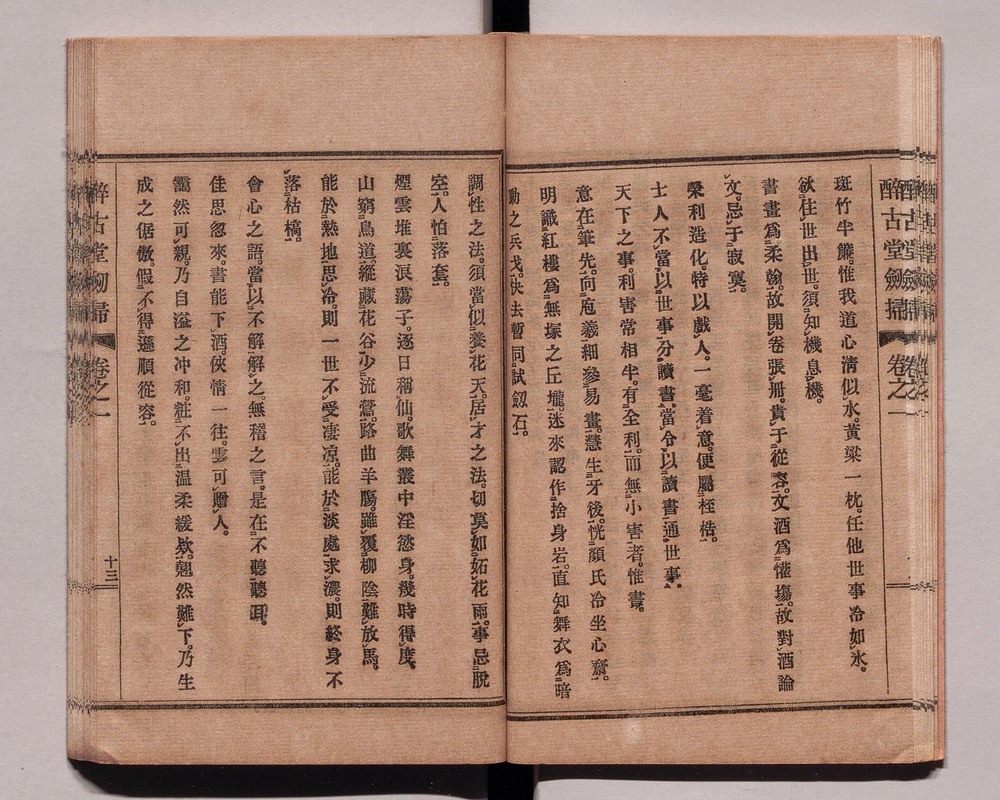 醉古堂劒掃 卷之一
斑竹半簾。惟我道心清似水。黃粱一枕。任他世事冷如氷。
欲住世出世。須知機息機。
書畫爲柔翰。故開卷張冊。貴于從容。文酒爲懽塲。故對酒論
文。忌于寂寞。
榮利造化。特以戲人。一毫着意。便屬桎梏。
士人不當以世事分讀書。當令以讀書通世事。
天下之事。利害常相半。有全利。而無小害者。惟書。
意在筆先。向庖羲細參易畫。慧生牙後。恍顏氏冷坐心齋。
明識紅樓爲無塚之丘壠。迷來認作捨身岩。直知舞衣爲暗
動之兵戈。快去暫同試劔石。
調性之法。須當似養花天。居才之法。切莫如妬花雨。事忌脫
空。人怕落套。
煙雲堆裏浪蕩子。逐日稱仙。歌舞叢中淫慾身。幾時得度。
山窮鳥道。縱藏花谷少流鶯。路曲羊腸。雖覆柳陰難放馬。
能於熱地思冷。則一世不受凄凉。能於淡處求濃。則終身不
落枯槁。
會心之語。當以不解解之。無稽之言。是在不聽聽耳。
佳思忽來。書能下酒。俠情一往。雲可贈人。
靄然可親。乃自溢之冲和。粧不出温柔緩欵。翹然難下。乃生
成之倨傲。假不得遜順從容。
醉古堂劒掃 卷之一 十三